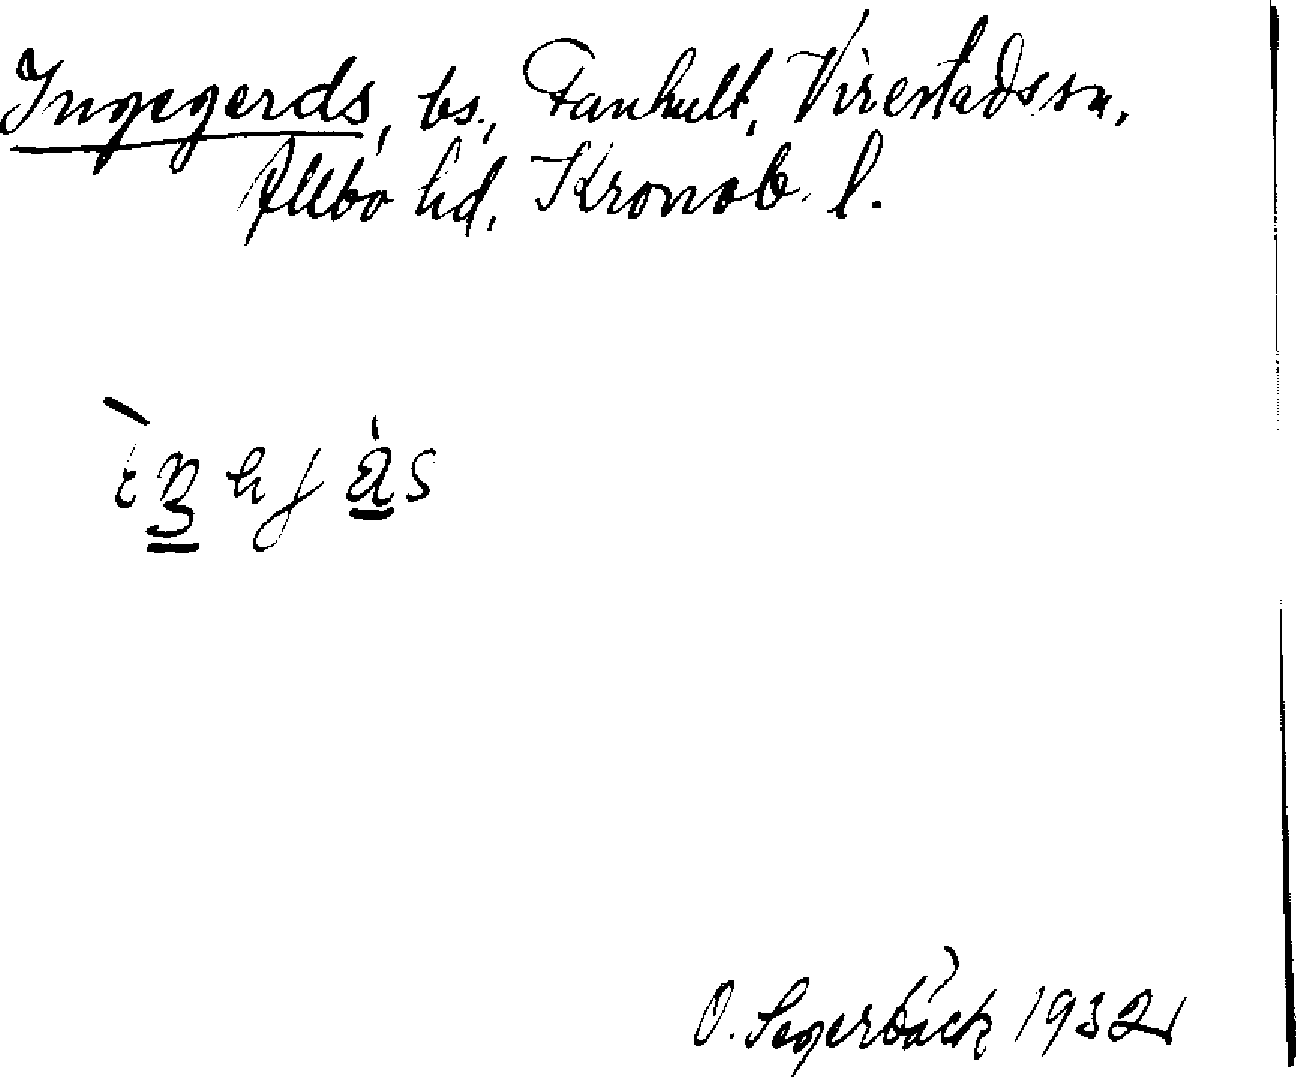 Ingegerds, bs., Fanhult, Virestads sn,
Allbo hd, Kronob. l.
O. Segerbäck 1932